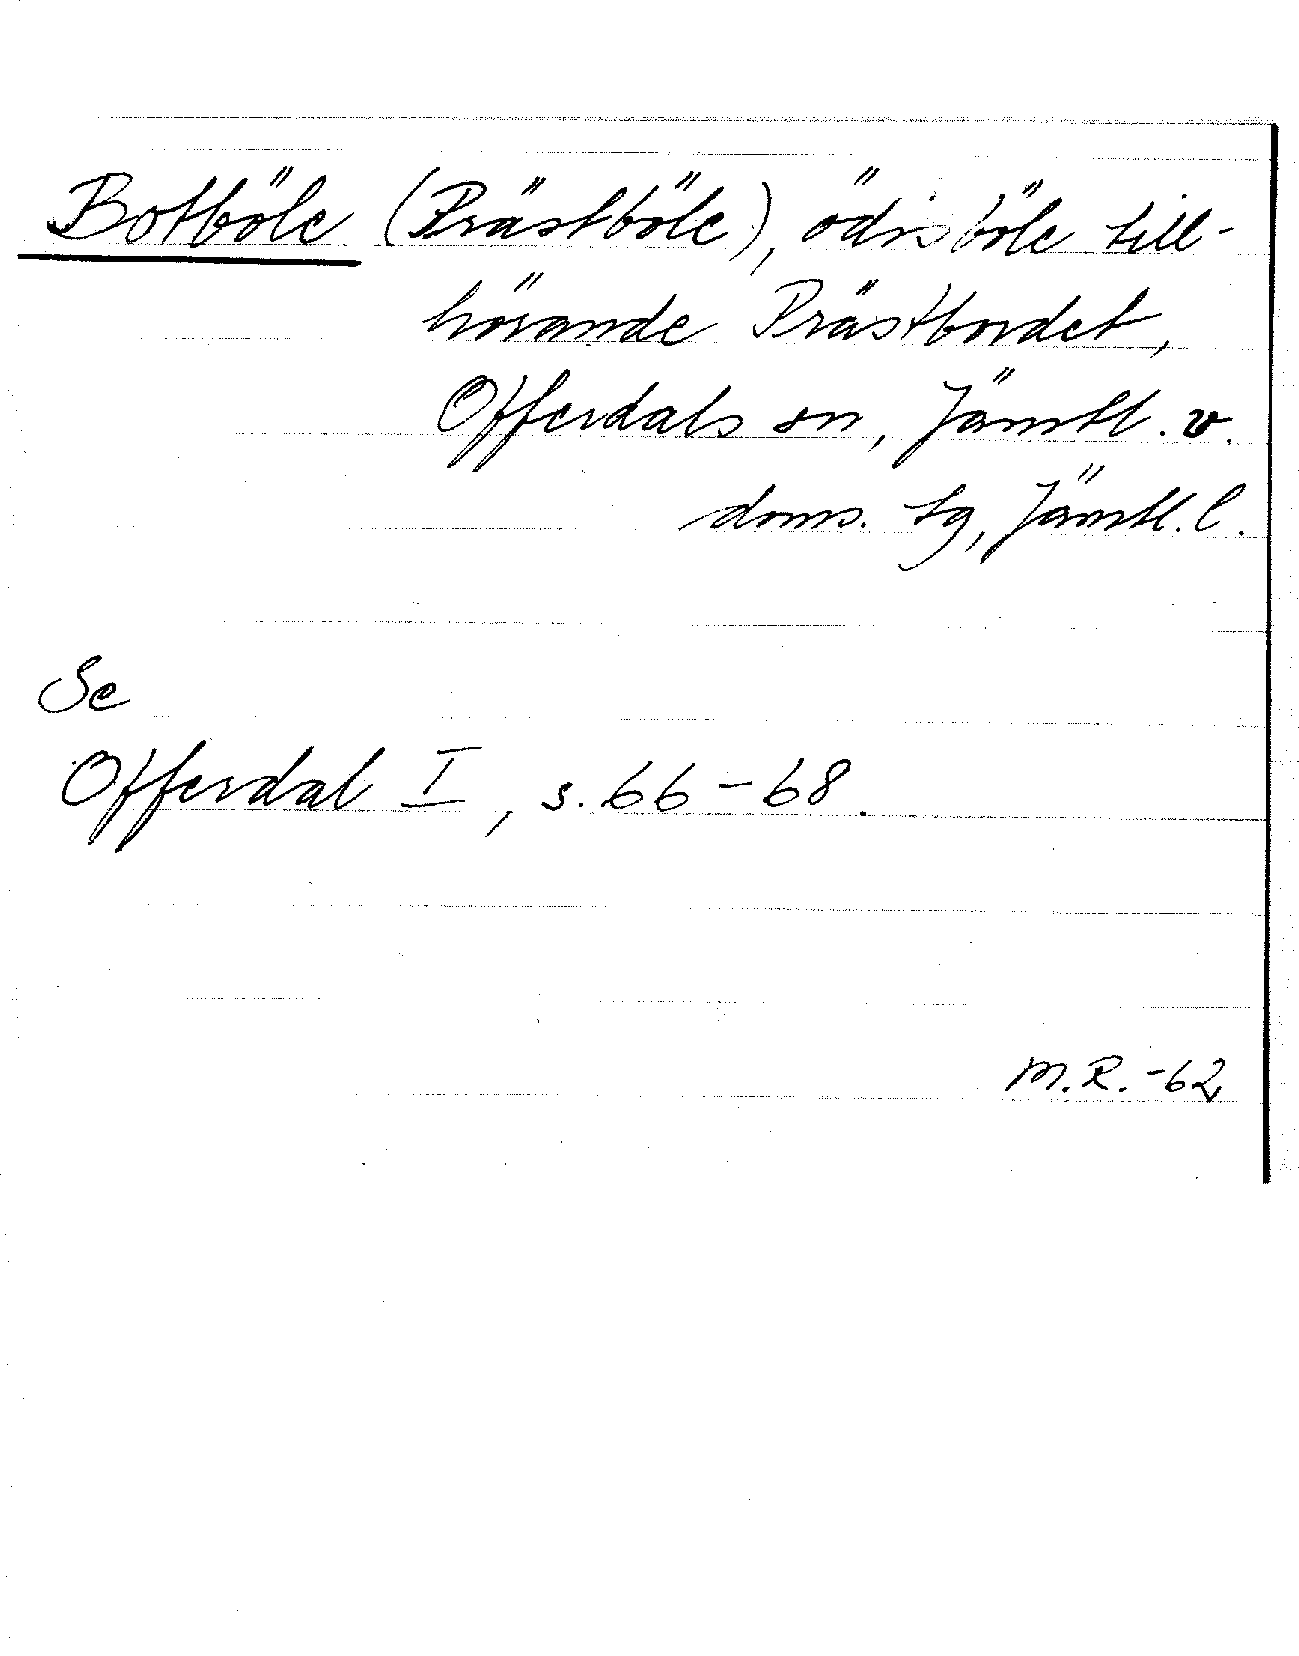 Botböle (Prästböle), ödisböle till-
hörande Prästbordet,
Offerdals sn, Jämtl. v.
doms. tg, Jämtl. l.
Se
Offerdal I, s. 66-68.
M.R. -62